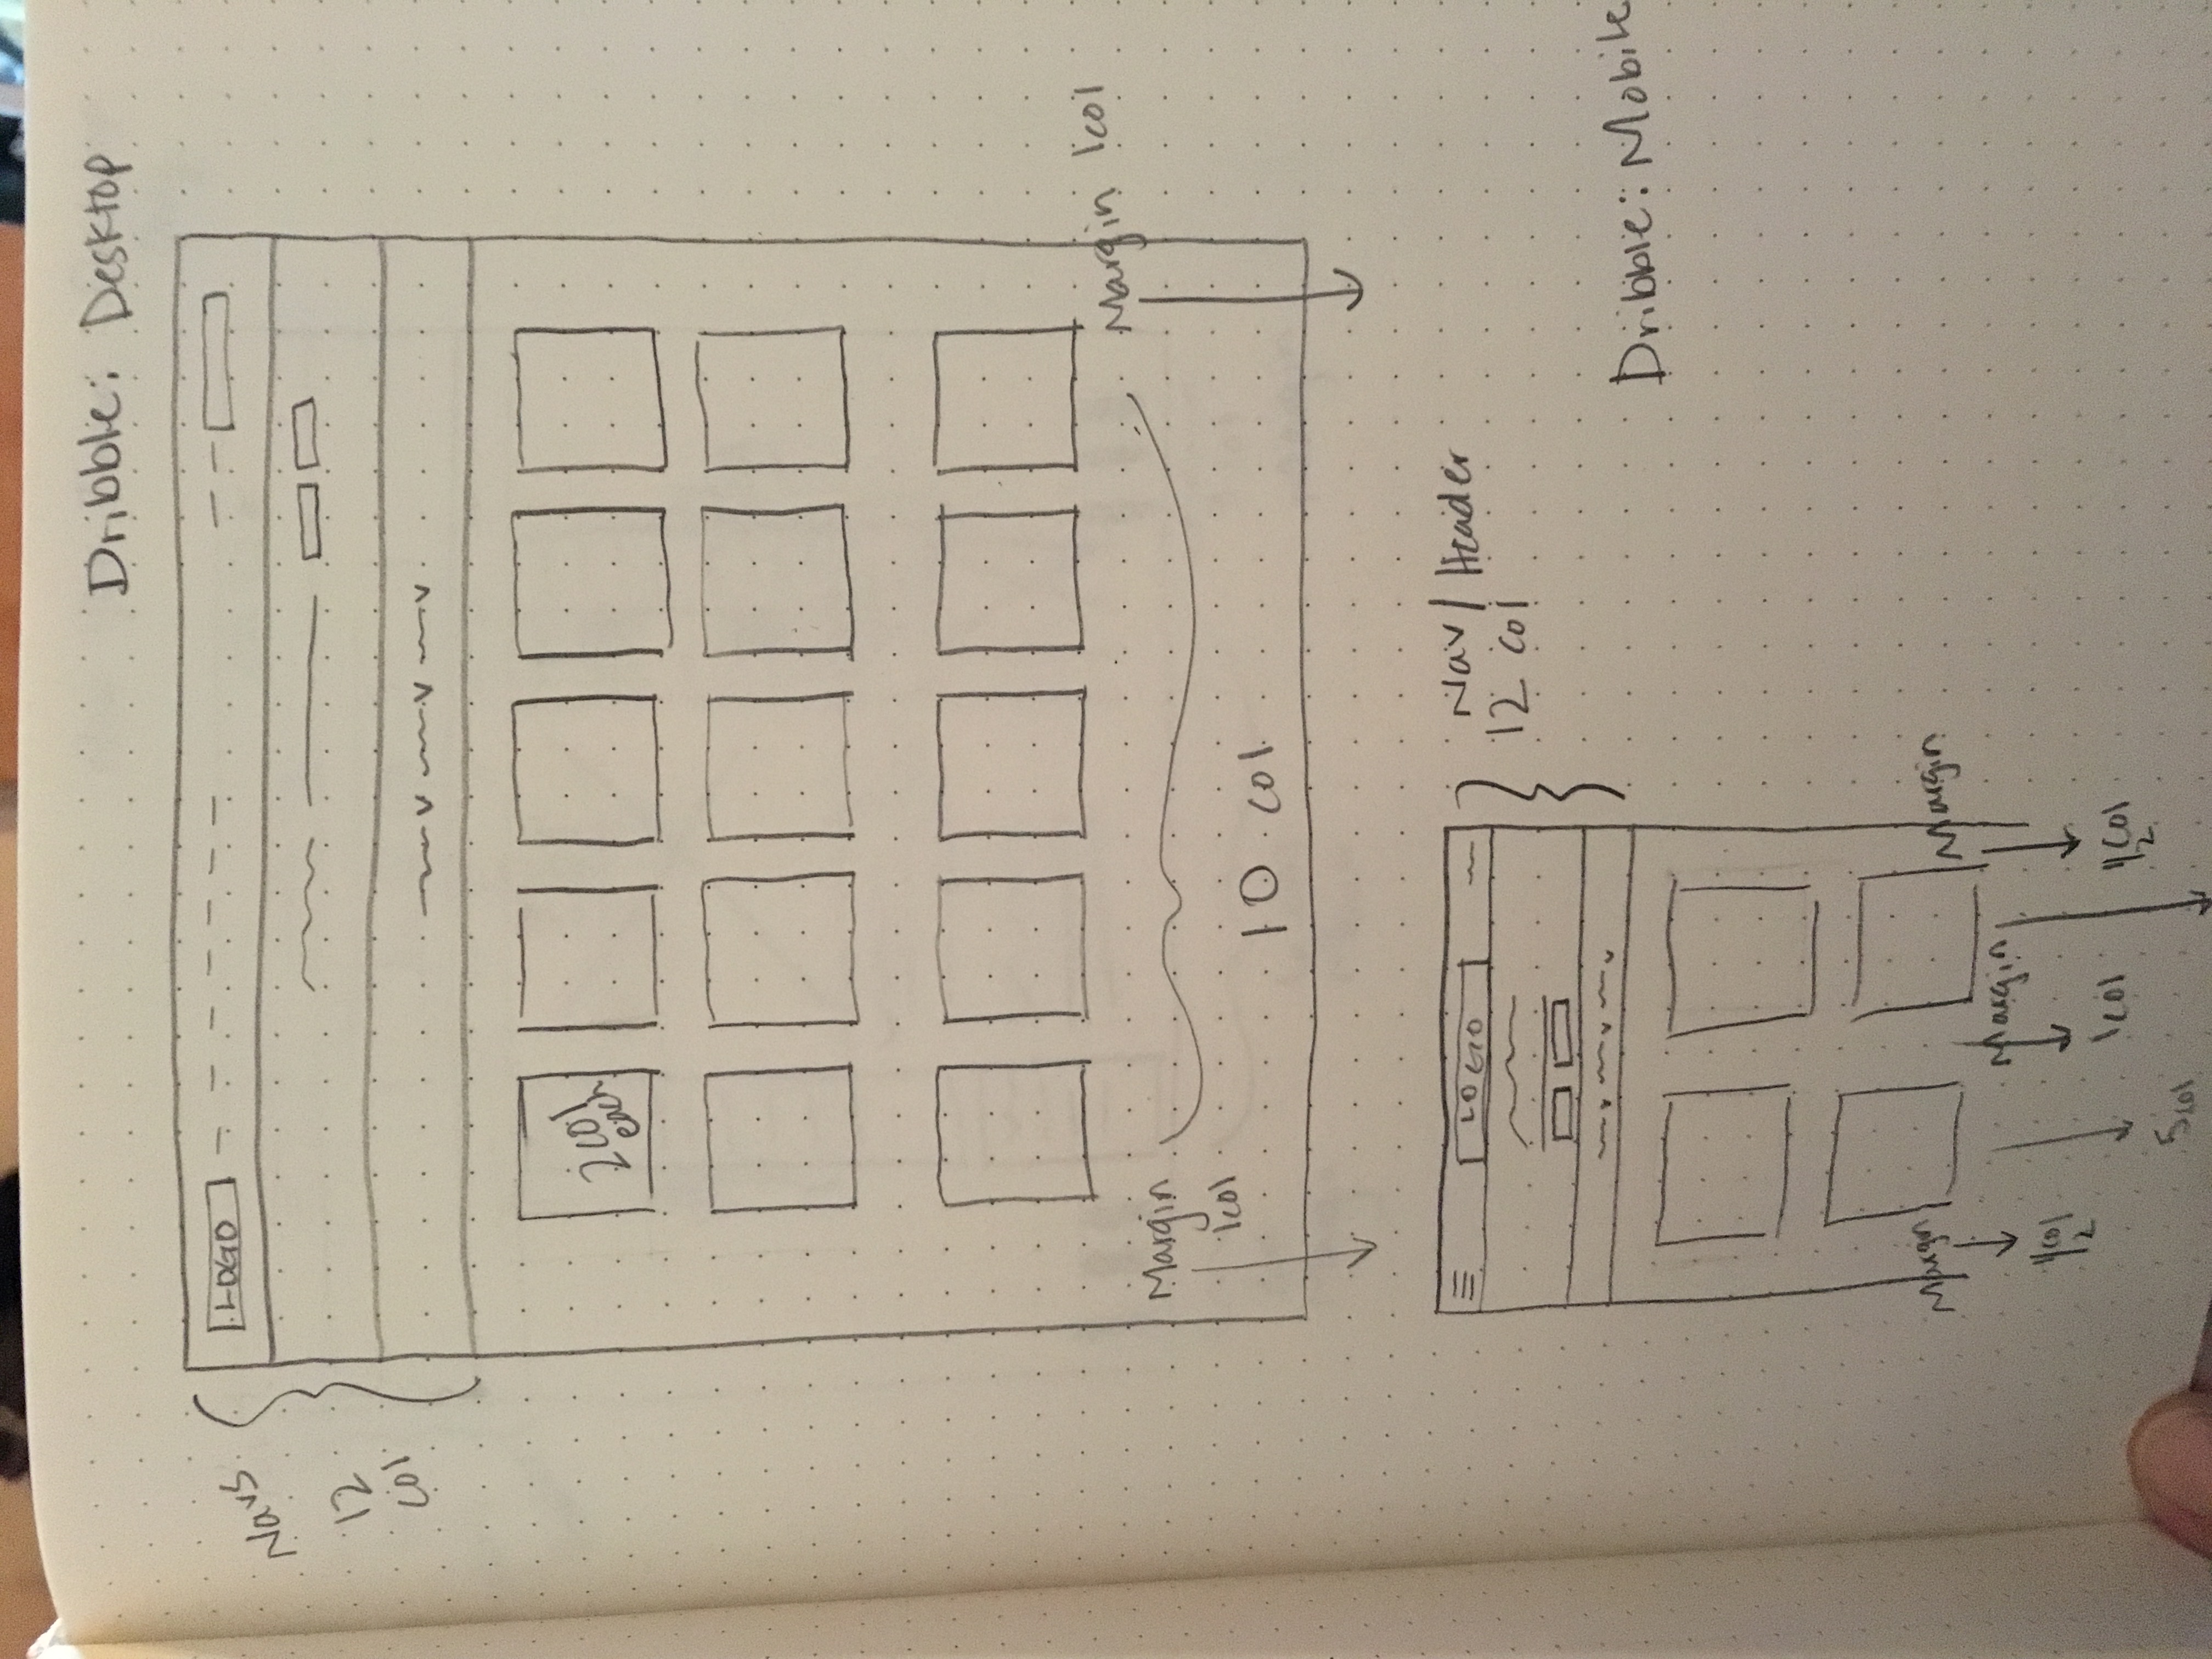 Dribbble: Desktop
Navs
12
col
LOGO
2 col
each
Margin 1col
Margin
1col
10 col
LOGO
Nav/Header
12 col
Dribbble: Mobile
Margin
Margin
Margin
1/2 col
1col
1/2 col
5col